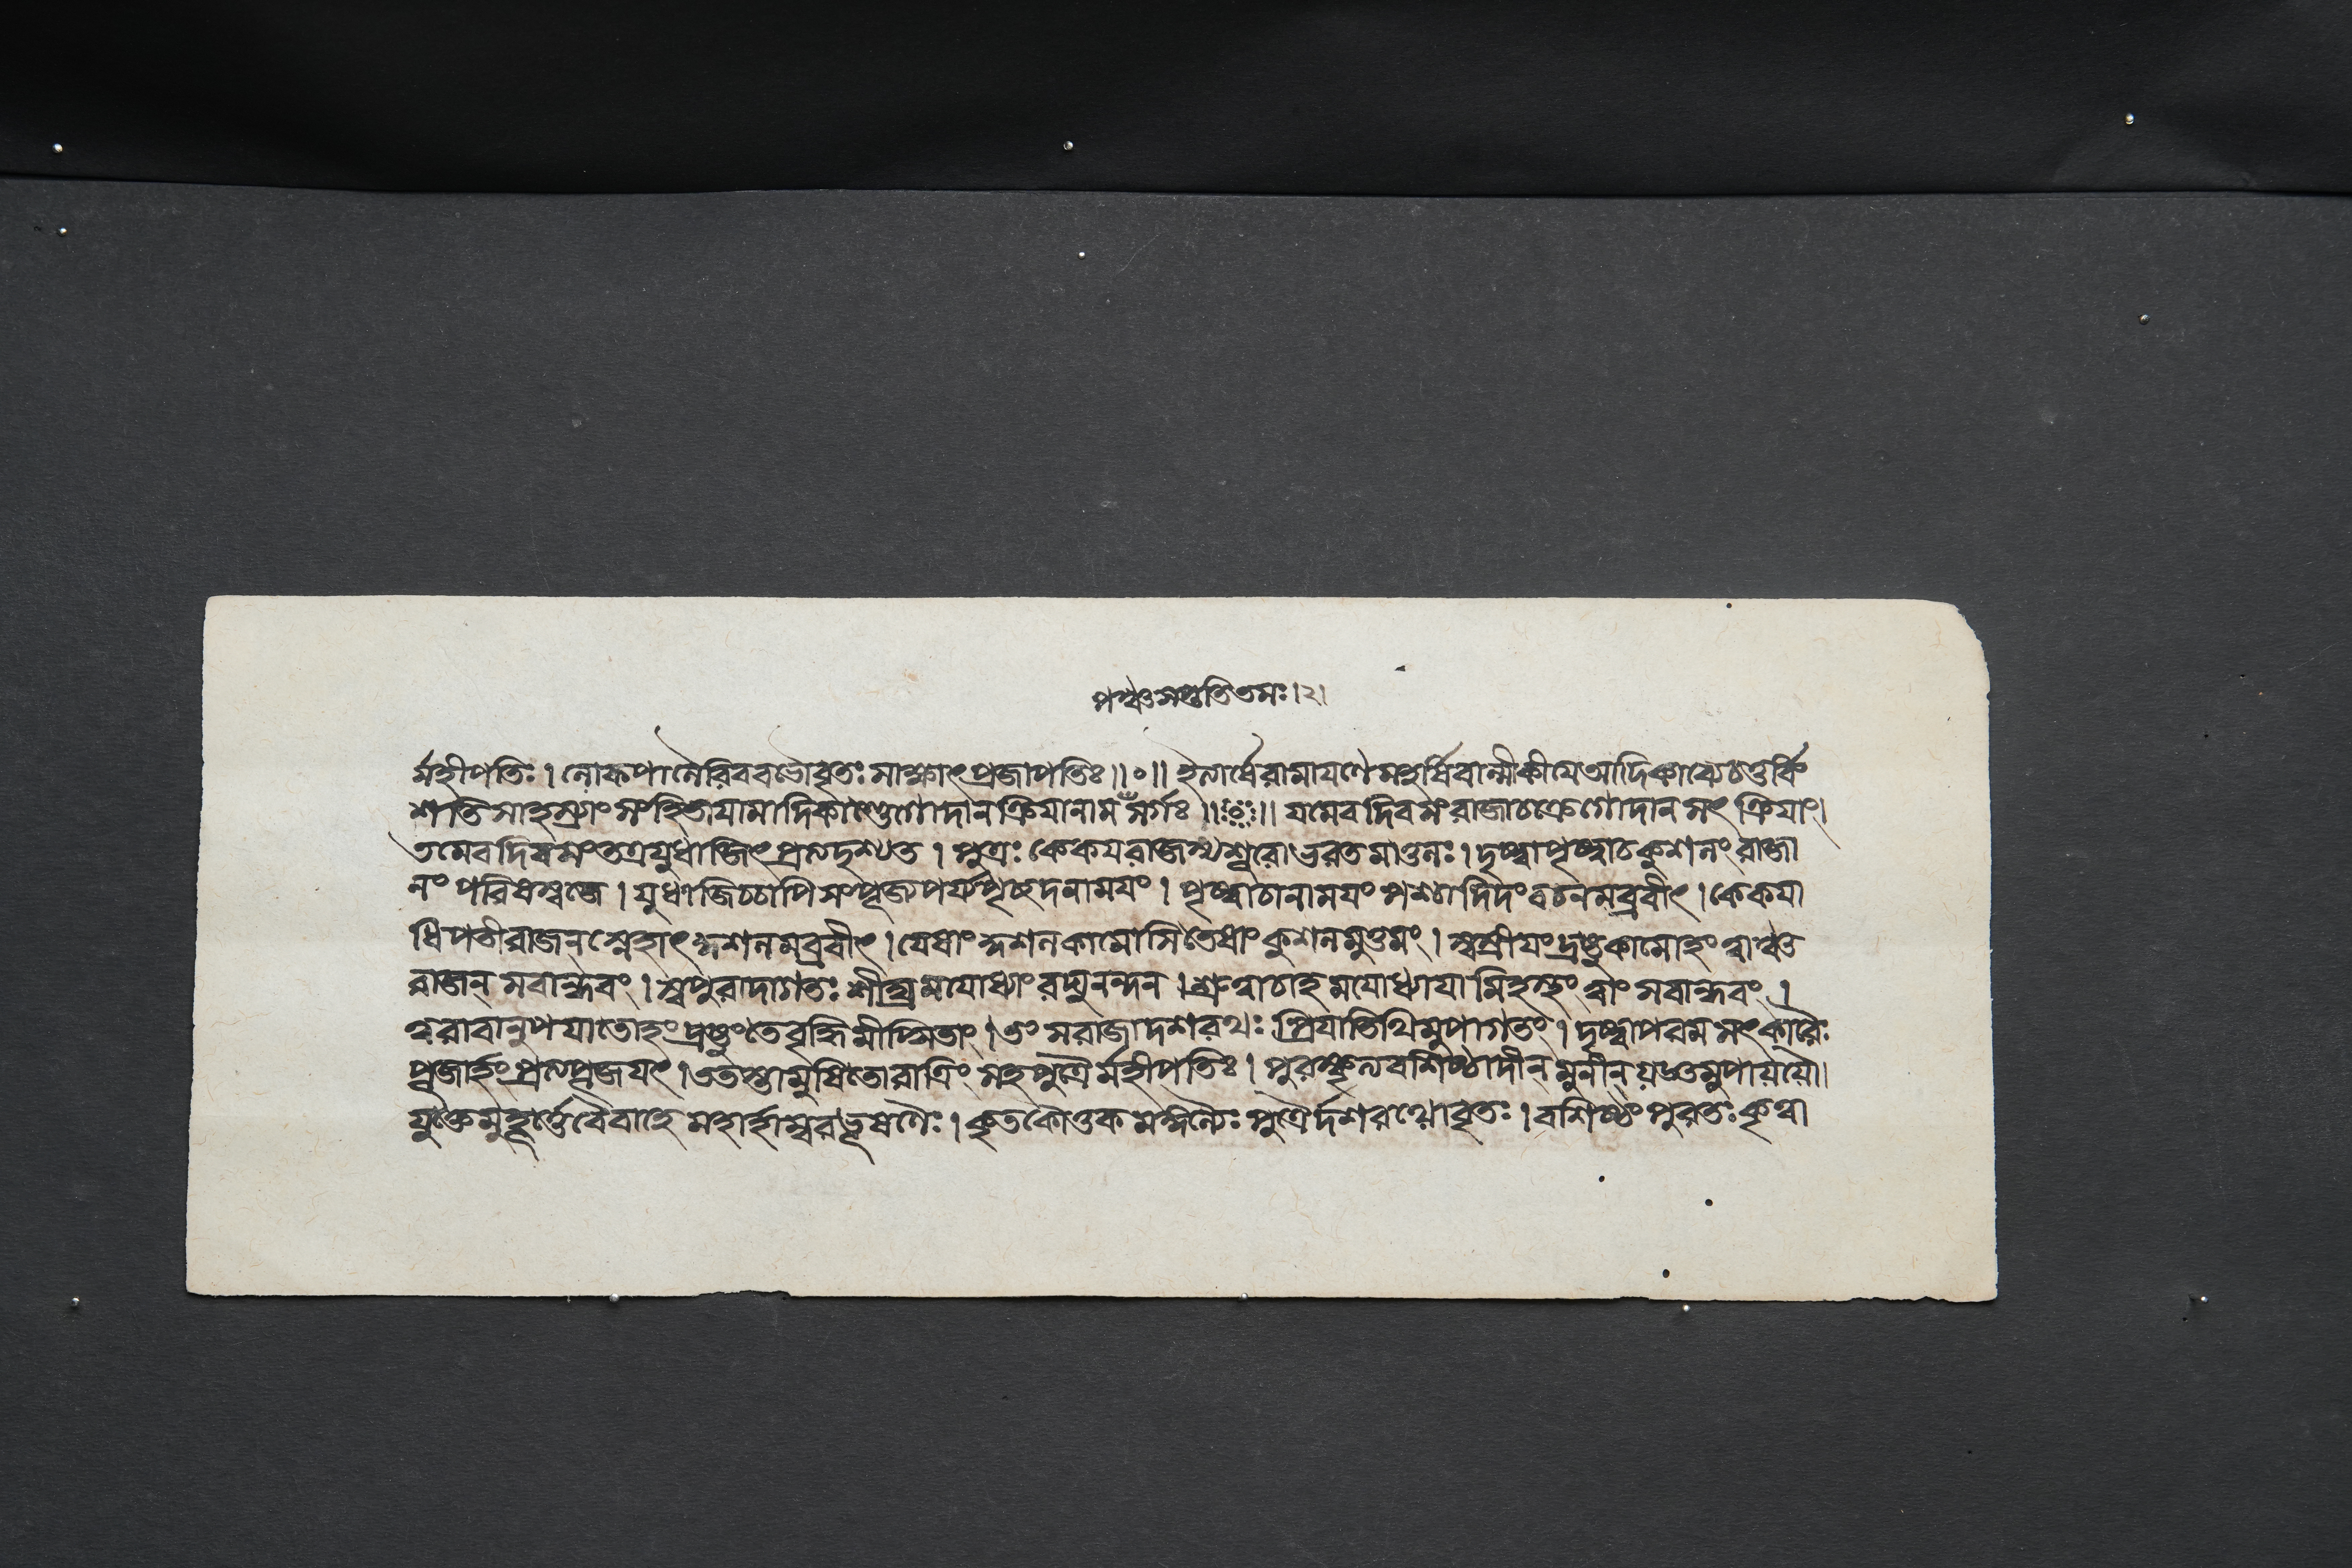 পঞ্চসপ্ততিতমঃ।২।
র্মহীপতিঃ। লোকপালৈরিববভৌবৃতঃ সাক্ষাৎ প্রজাপতিঃ॥০॥ ইত্যার্ষেরামায়ণেমহর্ষিবাল্মীকীয়েআদিকাব্যেচতুর্বিং
শতি সাহস্র্যাং সংহিতায়ামাদিকাণ্ডেগোদানক্রিয়ানাম সর্গঃ॥০॥ যমেবদিবসং রাজাচক্রেগোদানসৎ ক্রিয়াং।
তমেবদিবসং তত্রযুধাজিৎ প্রত্যদৃশ্যত। পুত্রঃ কেকয়রাজস্যশূরোভরতমাতুলঃ। দৃষ্ট্বাপৃষ্ট্বাচকুশলং রাজা
নং পরিষস্বজে। যুধাজিচ্চাপি সংপূজ্যপর্য্যপৃচ্ছদনাময়ং। পৃষ্ট্বাচানাময়ং পশ্চাদিদং বচনমব্রবীৎ। কেকয়া
ধিপতীরাজন্ স্নেহাৎ কুশলমব্রবীৎ। যেষাং কুশলকামোসিতেষাং কুশলমুত্তমং। স্বস্রীয়ং দ্রষ্টুকামোহং ত্বাঞ্চ
রাজন্ সবান্ধবং। স্বপুরাদাগতঃ শীঘ্রমযোধ্যাং রঘুনন্দন। শ্রুত্বাচাহমযোধ্যায়ামিহস্থং ত্বাং সবান্ধবং।
ত্বরাবানুপয়াতোহং দ্রষ্টুং তেবৃদ্ধিমীপ্সিতাং। তং সরাজাদশরথঃ প্রিয়াতিথিমুপাগতং। দৃষ্ট্বাপরমসৎকারৈঃ
পূজার্হং প্রত্যপূজয়ৎ। ততস্তামুষিতোরাত্রিং সহপুত্রৈর্মহীপতিঃ। পুরস্কৃত্যবশিষ্ঠাদীন্ মুনীন্ যজ্ঞমুপায়যৌ॥
যুক্তেমুহূর্ত্তেবৈবাহে মহার্হাম্বরভূষণৈঃ। কৃতকৌতুকমঙ্গল্যৈঃ পুত্রৈর্দশরথোবৃতঃ। বশিষ্ঠং পুরতঃ কৃত্বা